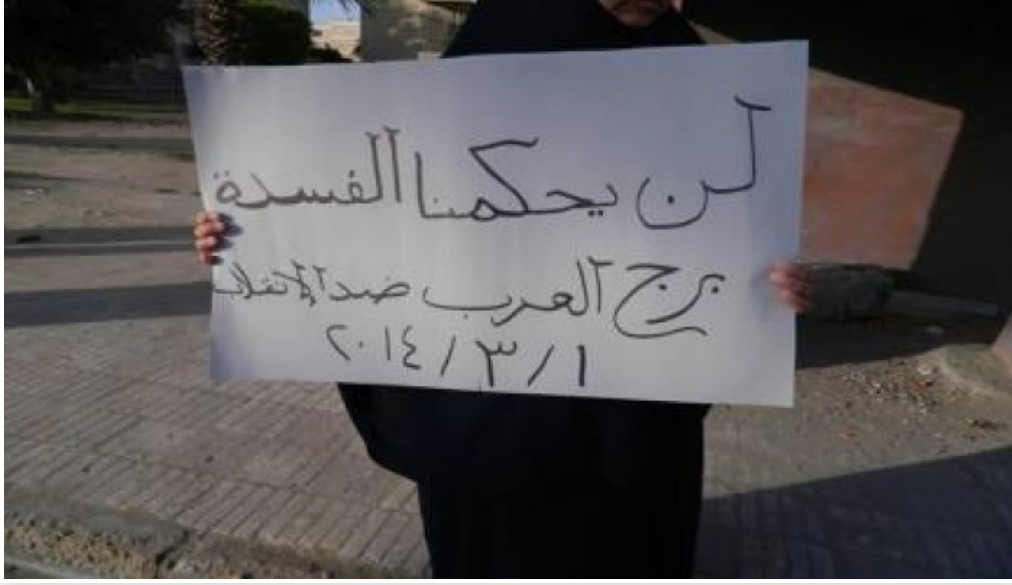 لن يحكمنا الفسدة
برج العرب ضد الإنقلاب
٢٠١٤/٣/١